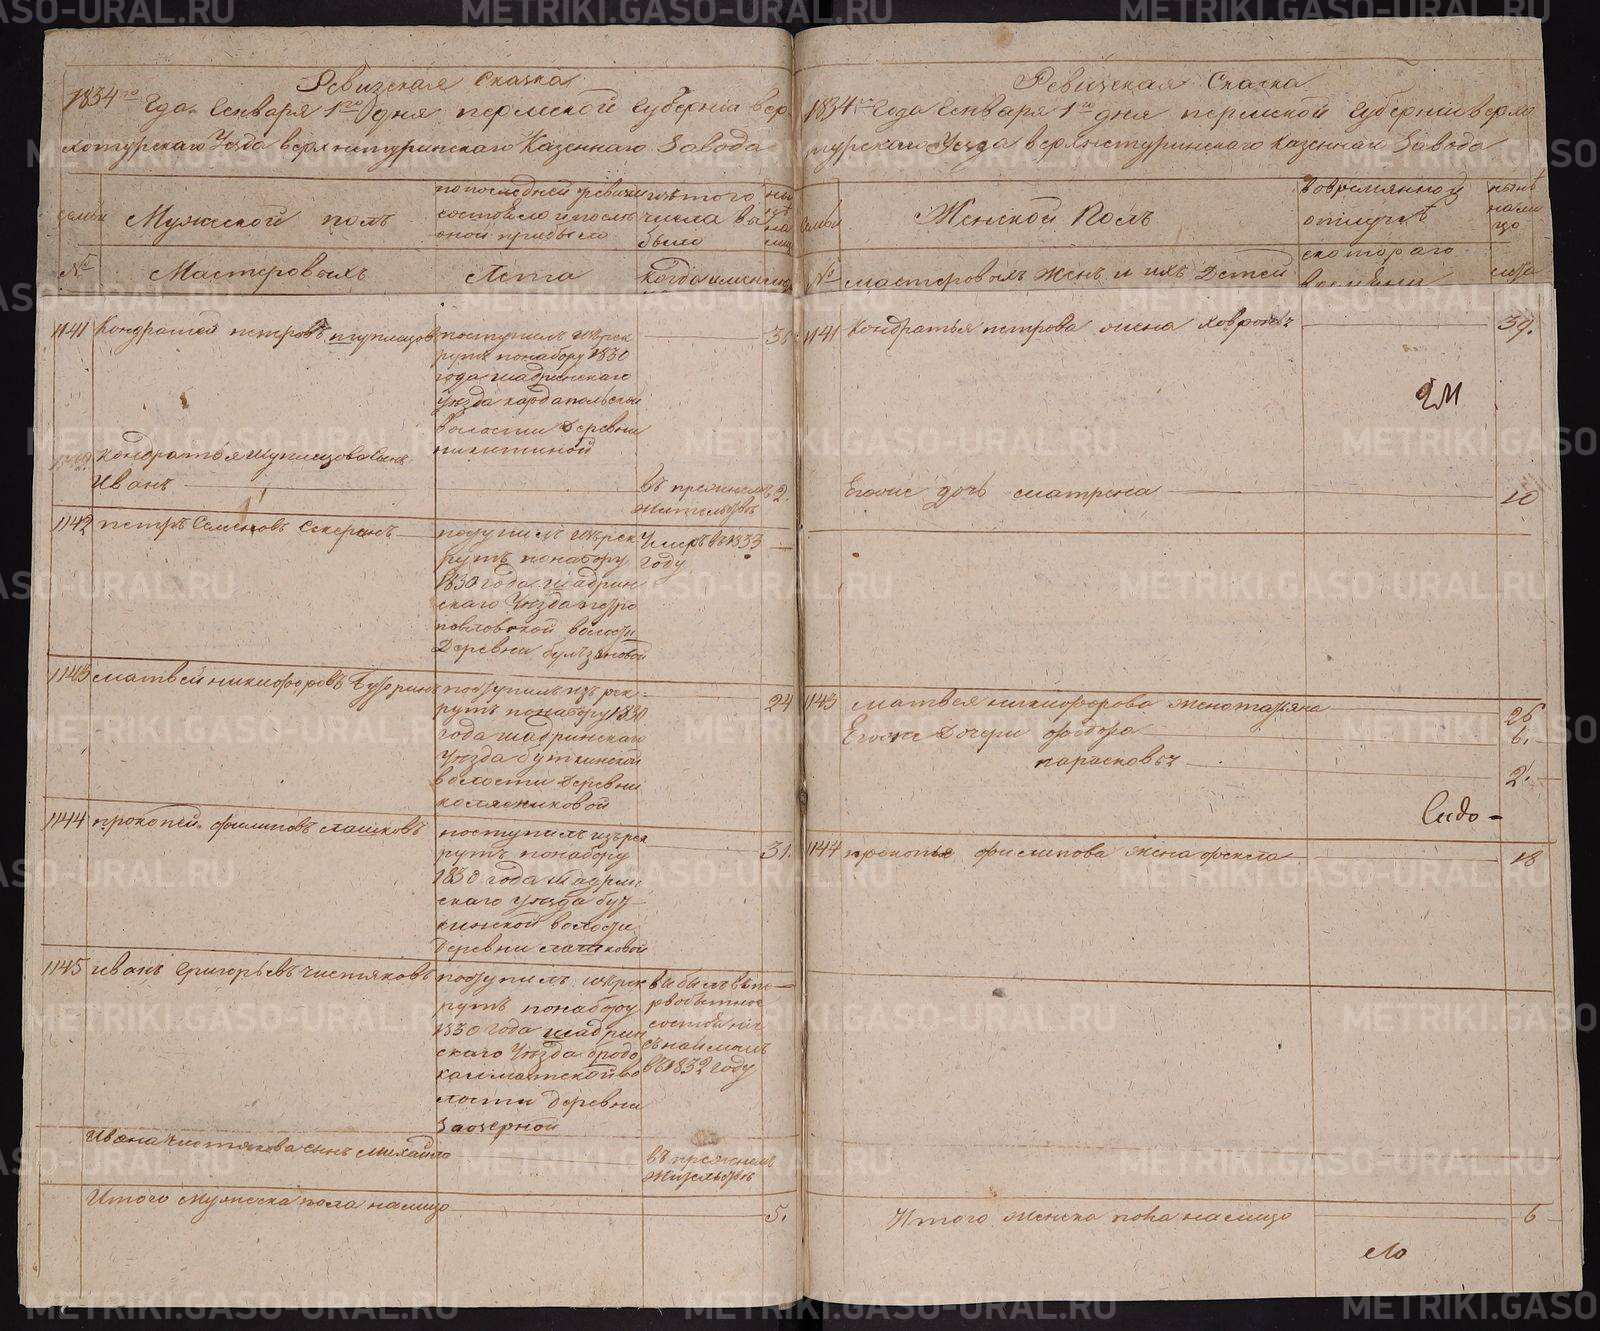 Ревизская Сказка
1834го Года Генваря 1го дня пермской Губернiи вер-
хотурскаго Уезда верхнетуринскаго Казеннаго Завода
семьи
Мужеской полъ
по последней ревизiи
состояло и после
оной прибыло
изъ того
числа вы
было
ны
не
на
лицо
№
Мастеровыхъ
Лета
когда именно
1141 Кондратей петровъ
поступилъ изъ рек
рутъ по набору 1830
года шадринскаго
уезда
волости Деревни
никитиной
Кондратья сынъ
Иванъ
въ прежнемъ
жительстве
2.
1142 петръ Семеновъ
поступилъ изъ рек
рутъ по набору
1830 года шадрин
скаго Уезда петро
павловской волости
Деревни
Умеръ въ 1833
году
1143 матвей никифоровъ
поступилъ изъ рек
рутъ по набору 1830
года шадринскаго
уезда буткинской
волости Деревни
колясниковой
24
1144 прокопей филиповъ
поступилъ изъ рек
рутъ по набору
1830 года шадрин
скаго уезда бут
кинской волости
Деревни
31.
1145 иванъ Григорьевъ чистяковъ
поступилъ изъ рек
рутъ по набору
1830 года шадрин
скаго Уезда бродо
калматской во
лости Деревни
Заозерной
выбылъ въ пе
рвобытное
состоянiе
въ 1832 году
Ивана чистякова сынъ михайло
въ прежнемъ
жительстве
Итого мужеска пола налицо
5.
Ревизская Сказка
1834го Года Генваря 1го дня пермской Губернiи верхо
турскаго Уезда верхнетуринскаго казеннаго Завода
семьи
Женской Полъ
во временной
отлучке
ныне
нали
цо
№
мастеровыхъ женъ и ихъ Детей
с котораго
времяни
лета
1141 Кондратья петрова жена
39.
Его дочь матрена
10
1143 матвея никифорова жена татьяна
26
Его Дочери федора
6.
парасковья
2.
1144 прокопья филипова жена фекла
18
Итого женска пола налицо
6
METRIKI.GASO-URAL.RU